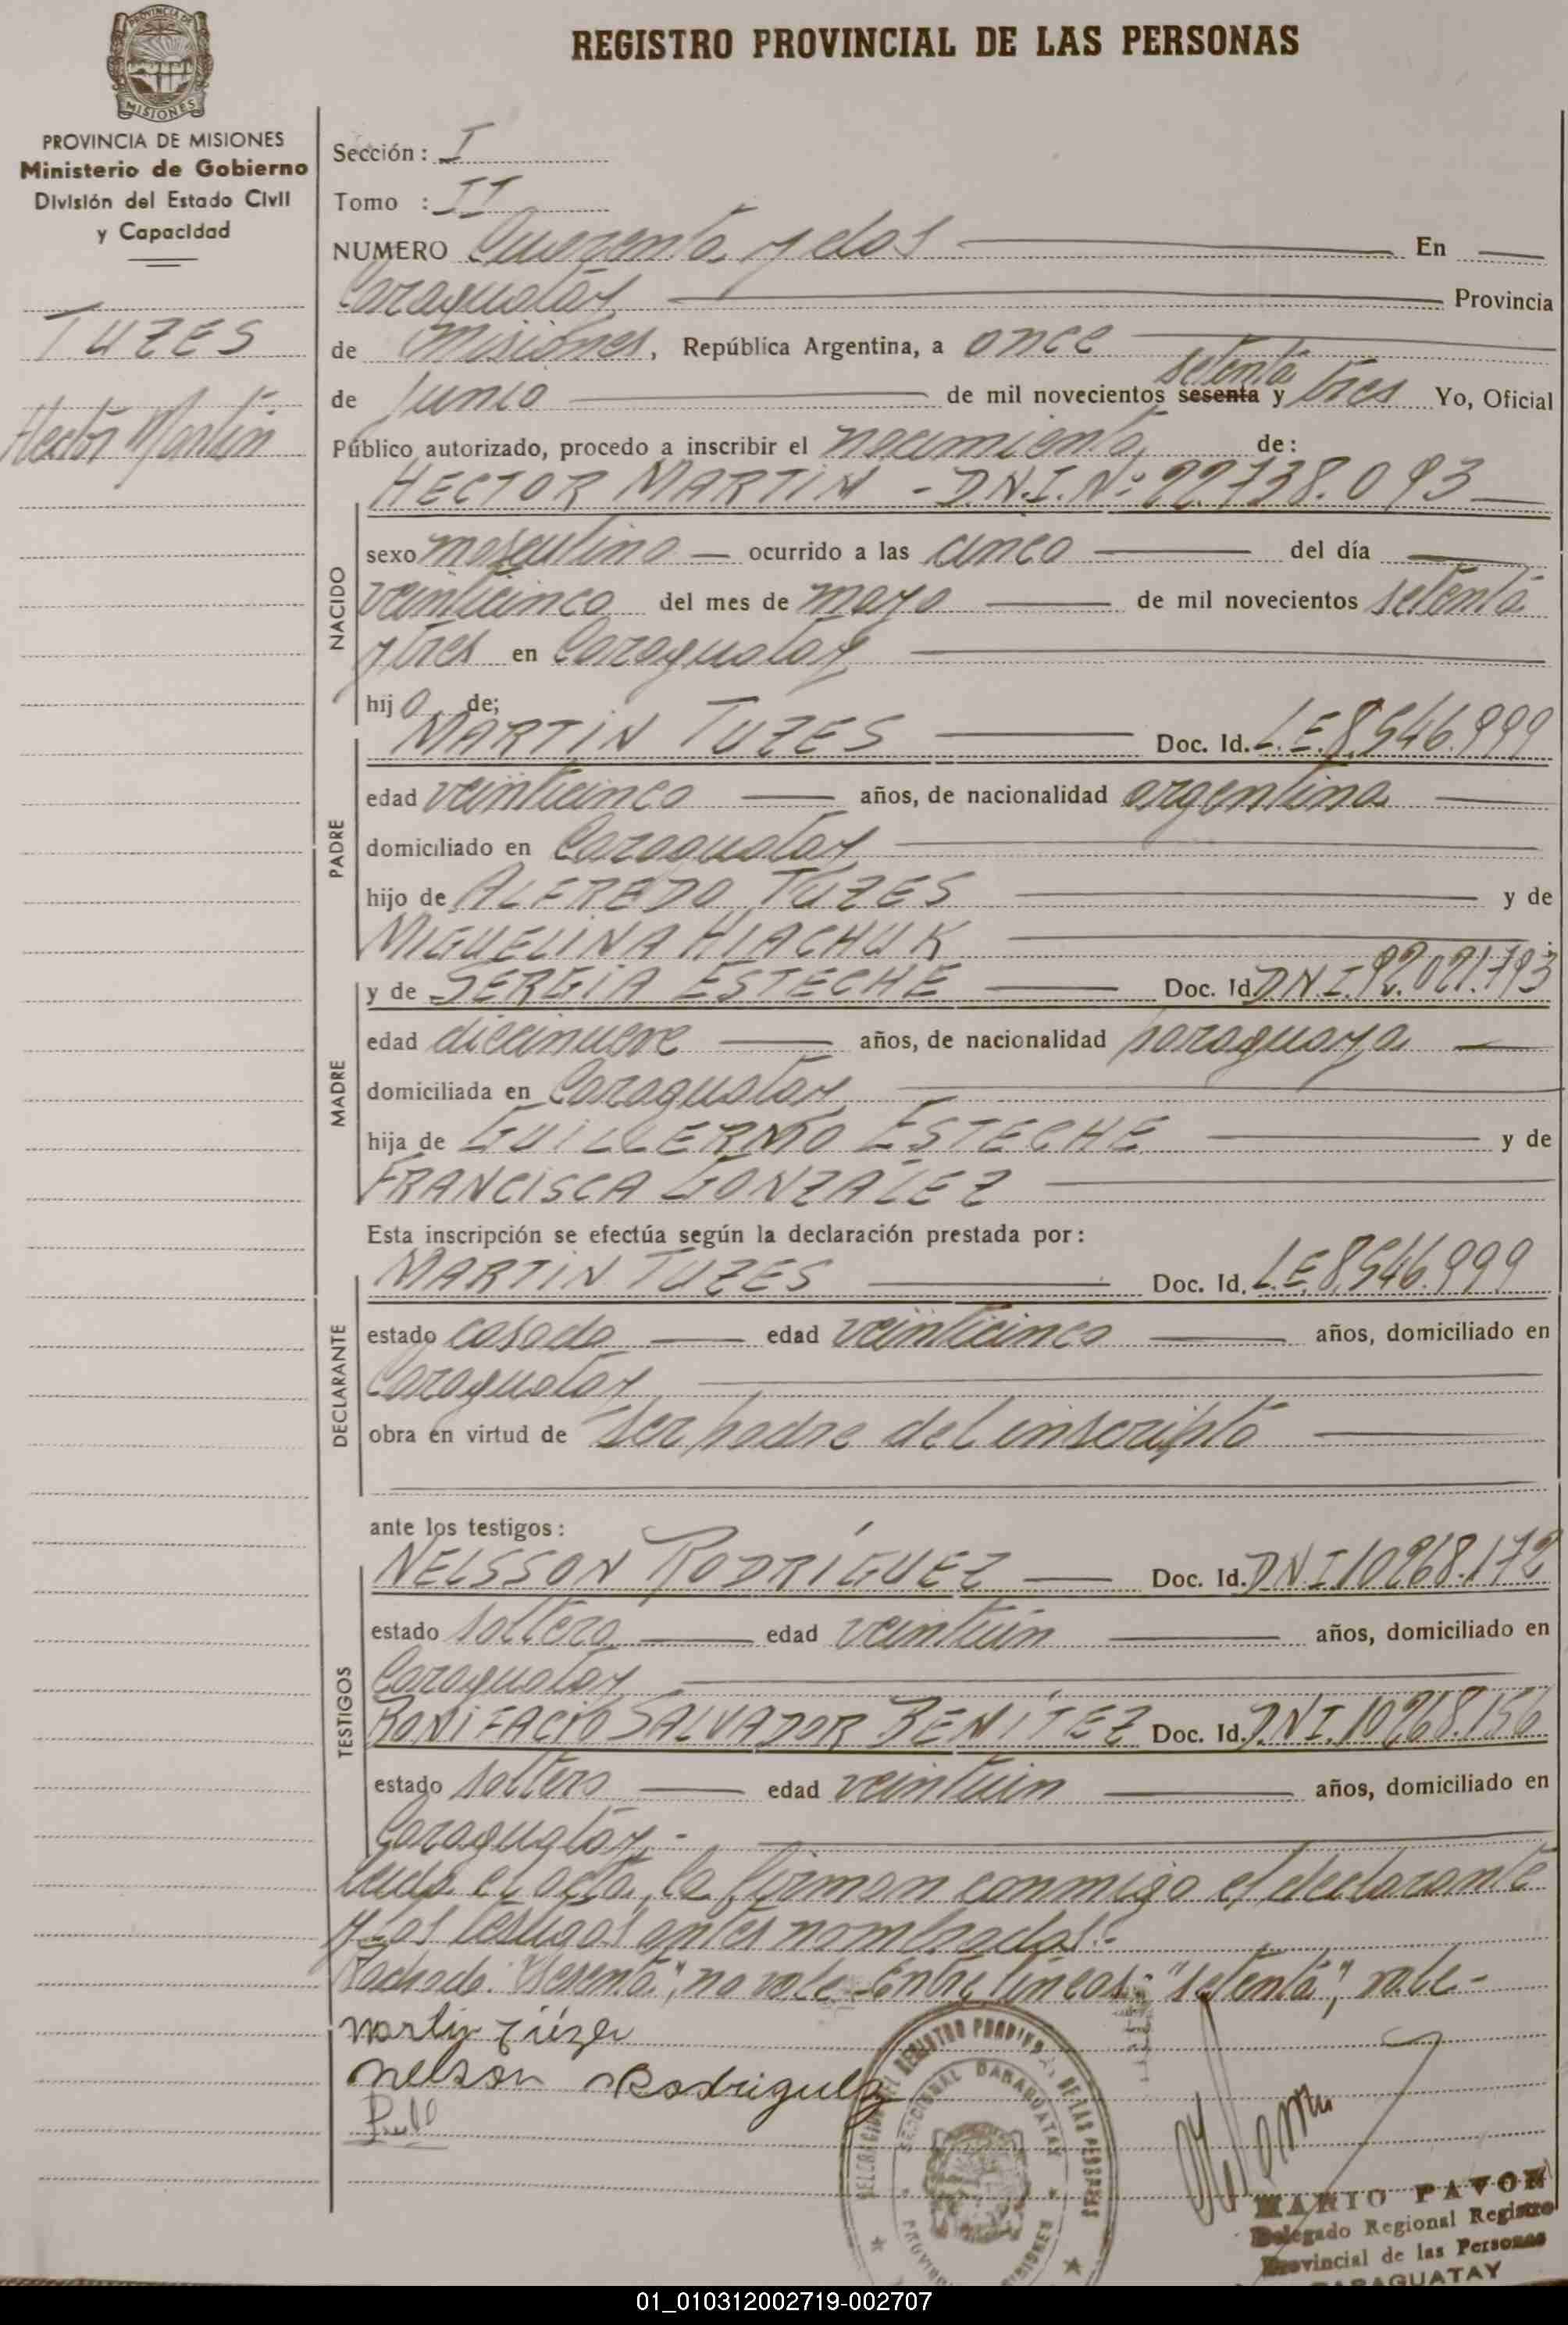 REGISTRO PROVINCIAL DE LAS PERSONAS
PROVINCIA DE MISIONES
MISIONES
PROVINCIA DE MISIONES
Ministerio de Gobierno
División del Estado Civil
y Capacidad
TUZES
Hector Martin
Sección: I
Tomo : II
NUMERO Cuarenta y dos En
Caraguatay Provincia
de Misiones, República Argentina, a once
setenta
de junio de mil novecientos sesenta y tres Yo, Oficial
Público autorizado, procedo a inscribir el nacimiento de:
HECTOR MARTIN - D.N.I. Nº 22.738.093
NACIDO
sexo masculino ocurrido a las cinco del día
veinticinco del mes de mayo de mil novecientos setenta
y tres en Caraguatay
hijo de;
PADRE
MARTIN TUZES Doc. Id. L.E. 8.546.999
edad veinticinco años, de nacionalidad argentina
domiciliado en Caraguatay
hijo de ALFREDO TUZES y de
MIGUELINA HIACHUK
MADRE
y de SERGIA ESTECHE Doc. Id D.N.I. 92.021.793
edad diecinueve años, de nacionalidad paraguaya
domiciliada en Caraguatay
hija de GUILLERMO ESTECHE y de
FRANCISCA GONZALEZ
Esta inscripción se efectúa según la declaración prestada por:
DECLARANTE
MARTIN TUZES Doc. Id. L.E. 8.546.999
estado casado edad veinticinco años, domiciliado en
Caraguatay
obra en virtud de ser padre del inscripto
ante los testigos:
TESTIGOS
NELSSON RODRÍGUEZ Doc. Id. D.N.I. 10.268.172
estado soltero edad veintiún años, domiciliado en
Caraguatay
BONIFACIO SALVADOR BENÍTEZ Doc. Id. D.N.I. 10.268.156
estado soltero edad veintiún años, domiciliado en
Caraguatay.-
Leída el acta, la firman conmigo el declarante
y los testigos antes nombrados.-
Tachado: "sesenta", no vale. Entre líneas: "setenta", vale-
Nelson Rodriguez
DELEGACION DEL REGISTRO PROVINCIAL DE LAS PERSONAS
SECCIONAL CARAGUATAY
PROVINCIA MISIONES
MARIO PAVON
Delegado Regional Registro
Provincial de las Personas
CARAGUATAY
01_010312002719-002707